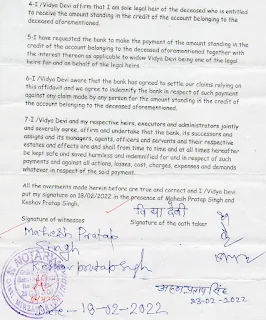 4-I /Vidya Devi affirm that I am sole legal heir of the deceased who is entitled
to receive the amount standing in the credit of the account belonging to the
deceased aforementioned.
5-I have requested the bank to make the payment of the amount standing in the
credit of the account belonging to the deceased aforementioned together with
the interest thereon as applicable to widow Vidya Devi being one of the legal
heirs for and on behalf of the legal heirs.
6-I /Vidya Devi aware that the bank has agreed to settle our claims relying on
this affidavit and we agree to indemnify the bank in respect of such payment
against any claim made by any person for the amount standing in the credit of
the account belonging to the deceased aforementioned.
7-I /Vidya Devi and my respective heirs, executors and administrators jointly
and severally agree, affirm and undertake that the bank, its successors and
assigns and its managers, agents, officers and servants and their respective
estates and effects are and shall from time to time and at all times hereafter
be kept safe and saved harmless and indemnified for and in respect of such
payments and against all actions, losses, cost, charges, expenses and demands
whatever in respect of the said payment.
All the averments made herein before are true and correct and I /Vidya Devi
put my signature on 18/02/2022 in the presence of Mahesh Pratap Singh and
Keshav Pratap Singh.
विद्या देवी
Signature of witnesses Signature of the oath taker
Mahesh Pratap
Singh
Keshav pratap singh
NOTARY
Date - 18-02-2022
23-02-2022